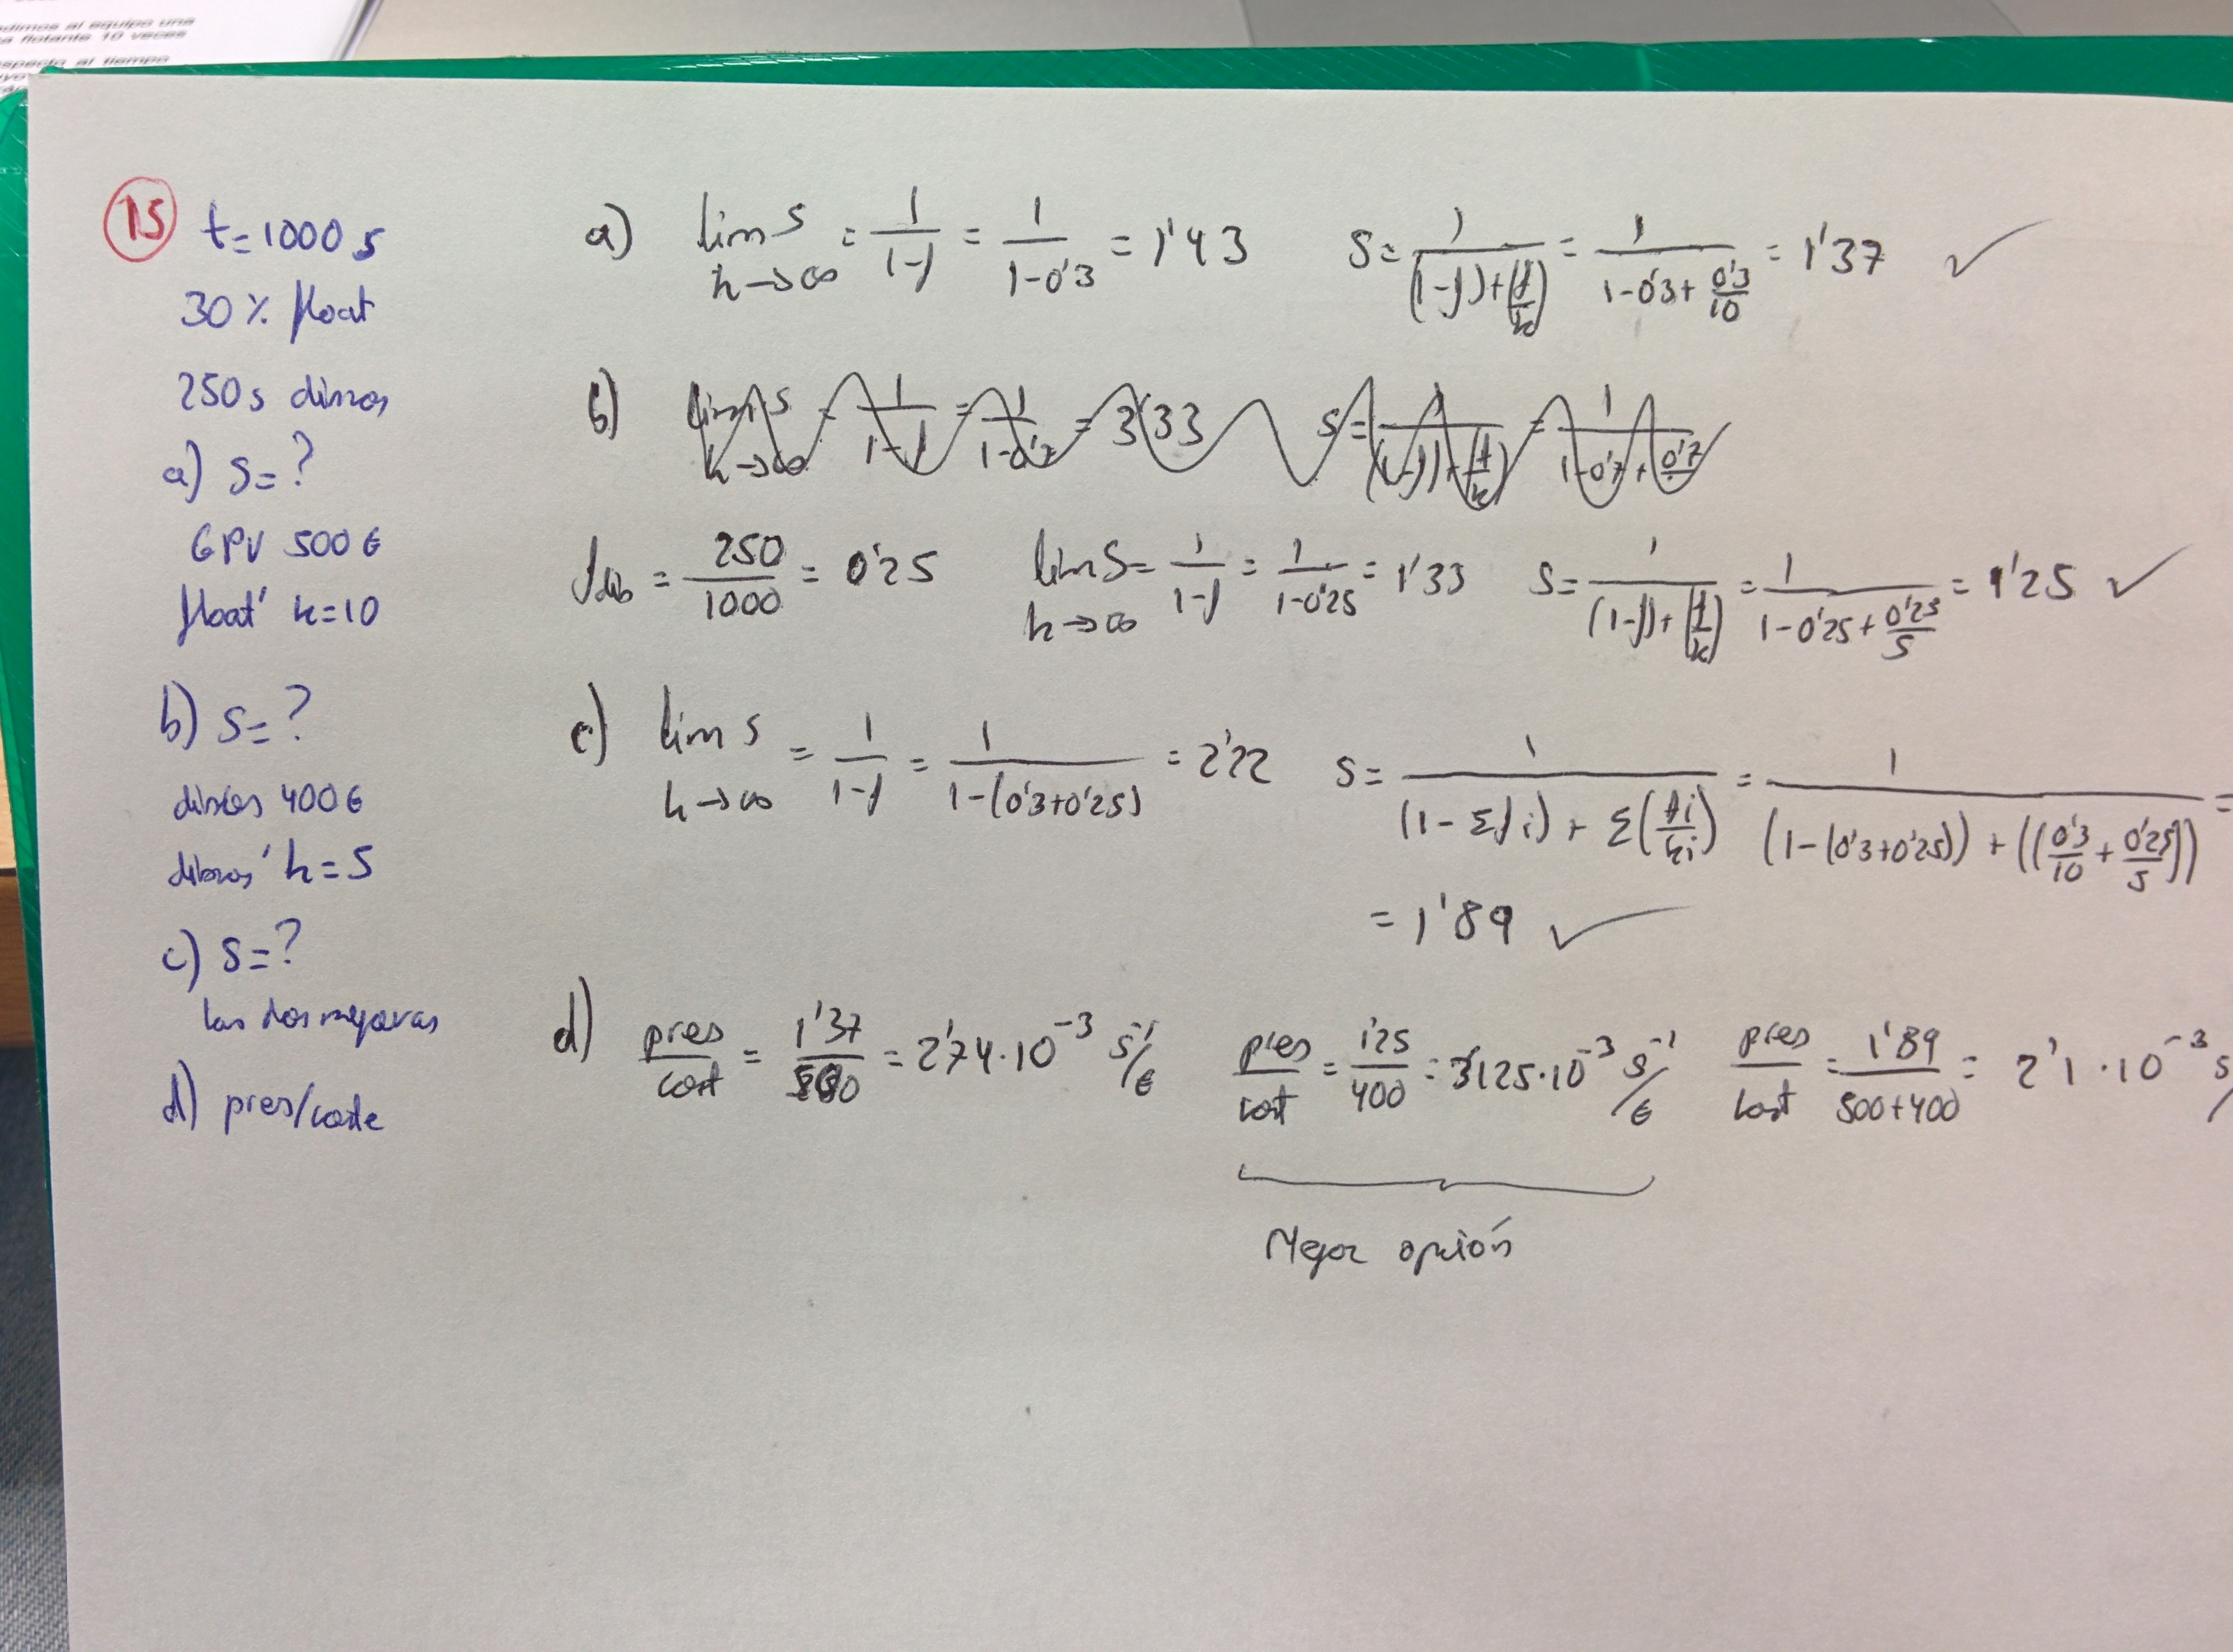 dimos al equipo una
flotante 10 veces
specto al tiempo
15
t=1000 s
30 % float
250 s
a) S=?
500 €
float' k=10
b) S=?
400 €
k=5
c) S=?
las dos mejoras
d) pres/coste
a) lim S k→∞ = 1/(1-f) = 1/(1-0'3) = 1'43 S= 1/((1-f)+(f/k)) = 1/(1-0'3+0'3/10) = 1'37 ✓
b) lim S k→∞ = 1/(1-f) = 1/(1-0'7) = 3'33 S= 1/((1-f)+(f/k)) = 1/(1-0'7+0'7/
= 250/1000 = 0'25 lim S k→∞ = 1/(1-f) = 1/(1-0'25) = 1'33 S= 1/((1-f)+(f/k)) = 1/(1-0'25+0'25/5) = 1'25 ✓
c) lim S k→∞ = 1/(1-f) = 1/(1-(0'3+0'25)) = 2'22 S= 1/((1-Σfi)+Σ(fi/ki)) = 1/((1-(0'3+0'25))+((0'3/10+0'25/5))) =
= 1'89 ✓
d) pres/cost = 1'37/500 = 2'74·10⁻³ s⁻¹/€ pres/cost = 1'25/400 = 3'125·10⁻³ s⁻¹/€ pres/cost = 1'89/(500+400) = 2'1·10⁻³ s/
Mejor opción